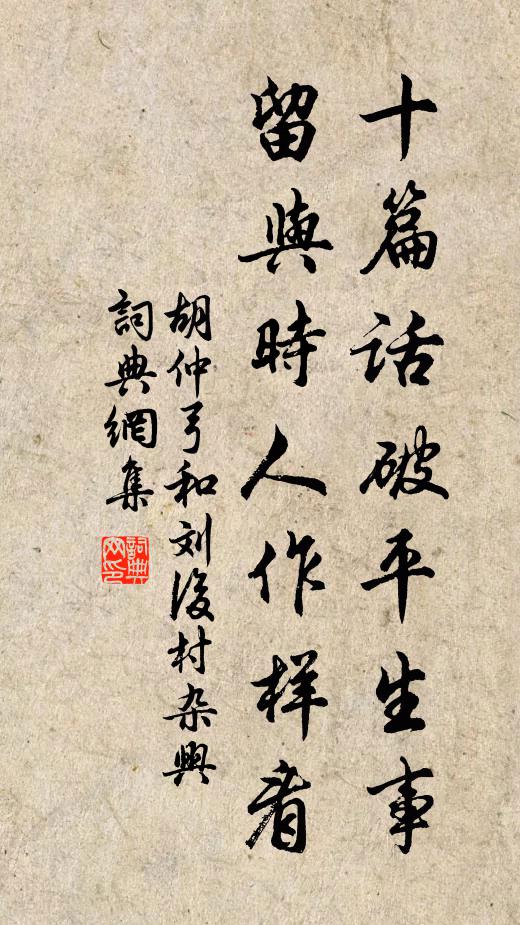 十篇话破平生事
留與時人作样看
胡仲弓和刘後村杂興
詞典網集
詞典
网印